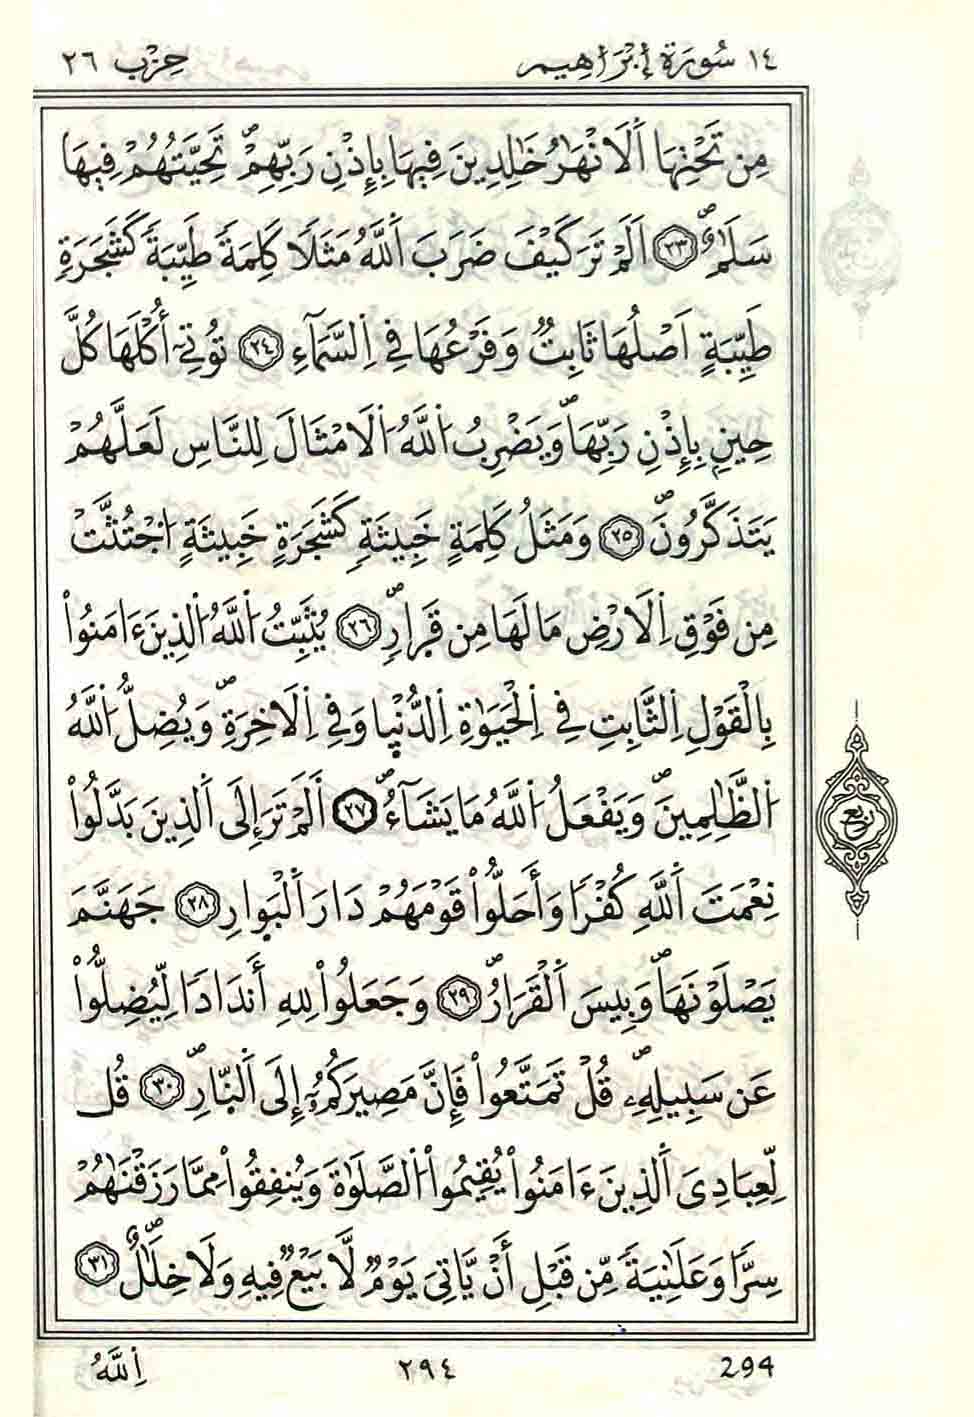 ١٤ سُورَةُ إِبْرَاهِيم حِزْب ٢٦
مِن تَحْتِهَا اَ۬لَانْهَٰرُ خَٰلِدِينَ فِيهَا بِإِذْنِ رَبِّهِمْۖ تَحِيَّتُهُمْ فِيهَا
سَلَٰمٌۖ ٢٣ اَلَمْ تَرَ كَيْفَ ضَرَبَ اَ۬للَّهُ مَثَلاٗ كَلِمَةٗ طَيِّبَةٗ كَشَجَرَةٖ
طَيِّبَةٍ اَصْلُهَا ثَابِتٞ وَفَرْعُهَا فِے اِ۬لسَّمَآءِ ٢٤ تُوتِےٓ أُكْلَهَا كُلَّ
حِينِۢ بِإِذْنِ رَبِّهَاۖ وَيَضْرِبُ اُ۬للَّهُ اُ۬لَامْثَالَ لِلنَّاسِ لَعَلَّهُمْ
يَتَذَكَّرُونَۖ ٢٥ وَمَثَلُ كَلِمَةٍ خَبِيثَةٖ كَشَجَرَةٍ خَبِيثَةٍ اجْتُثَّتْ
مِن فَوْقِ اِ۬لَارْضِ مَا لَهَا مِن قَرَارٖۖ ٢٦ يُثَبِّتُ اُ۬للَّهُ اُ۬لذِينَ ءَامَنُواْ
بِالْقَوْلِ اِ۬لثَّابِتِ فِے اِ۬لْحَيَوٰةِ اِ۬لدُّنْي۪ا وَفِے اِ۬لَاخِرَةِۖ وَيُضِلُّ اُ۬للَّهُ
اُ۬لظَّٰلِمِينَۖ وَيَفْعَلُ اُ۬للَّهُ مَا يَشَآءُۖ ٢٧ أَلَمْ تَرَ إِلَى اَ۬لذِينَ بَدَّلُواْ
نِعْمَتَ اَ۬للَّهِ كُفْراٗ وَأَحَلُّواْ قَوْمَهُمْ دَارَ اَ۬لْبَو۪ارِ ٢٨ جَهَنَّمَ
يَصْلَوْنَهَاۖ وَبِيسَ اَ۬لْقَرَارُۖ ٢٩ وَجَعَلُواْ لِلهِ أَندَاداٗ لِّيُضِلُّواْ
عَن سَبِيلِهِۦۖ قُلْ تَمَتَّعُواْ فَإِنَّ مَصِيرَكُمُۥٓ إِلَى اَ۬لنّ۪ارِۖ ٣٠ قُل
لِّعِبَادِيَ اَ۬لذِينَ ءَامَنُواْ يُقِيمُواْ اُ۬لصَّلَوٰةَ وَيُنفِقُواْ مِمَّا رَزَقْنَٰهُمْ
سِرّاٗ وَعَلَٰنِيَةٗ مِّن قَبْلِ أَنْ يَّاتِيَ يَوْمٞ لَّا بَيْعٞ فِيهِ وَلَا خِلَٰلٌۖ ٣١
ربع
294 ٢٩٤ اِ۬للَّهُ